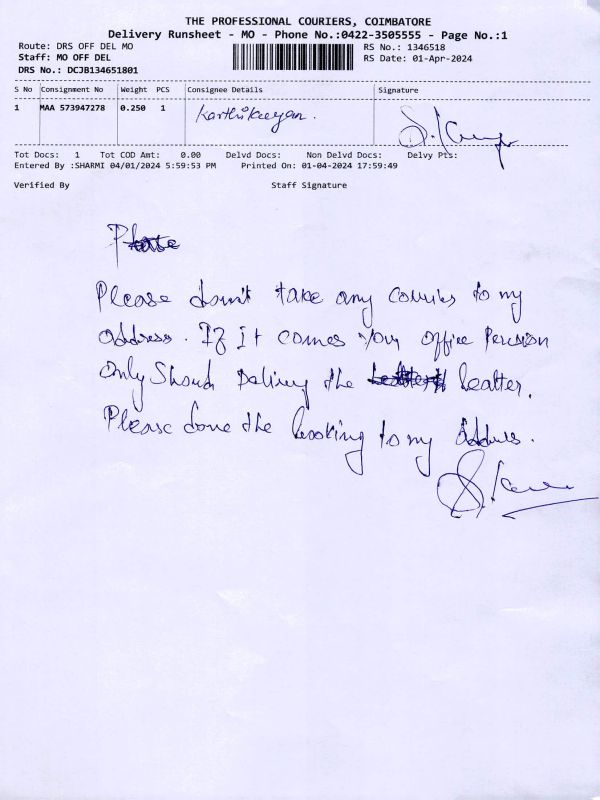 THE PROFESSIONAL COURIERS, COIMBATORE
Delivery Runsheet - MO - Phone No.:0422-3505555 - Page No.:1
Route: DRS OFF DEL MO RS No.: 1346518
Staff: MO OFF DEL RS Date: 01-Apr-2024
DRS No.: DCJB134651801
S No Consignment No Weight PCS Consignee Details Signature
1 MAA 573947278 0.250 1 Karthikeyan.
Tot Docs: 1 Tot COD Amt: 0.00 Delvd Docs: Non Delvd Docs: Delvy Pts:
Entered By :SHARMI 04/01/2024 5:59:53 PM Printed On: 01-04-2024 17:59:49
Verified By Staff Signature
Please don't take any to my
address. If it comes your office
only should the leatter.
Please done the booking to my